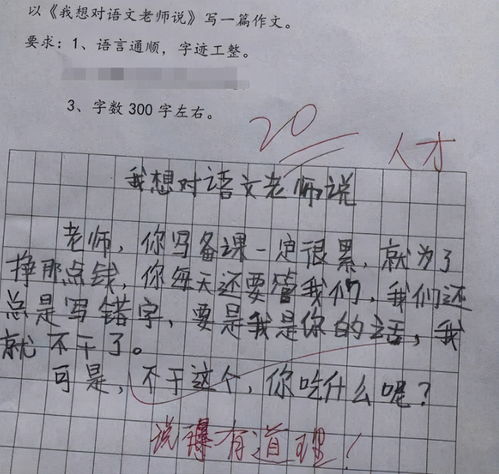 以《我想对语文老师说》写一篇作文。
要求：1、语言通顺，字迹工整。
3、字数 300 字左右。
20
人才
我想对语文老师说
老师，你写备课一定很累，就为了
挣那点钱，你每天还要管我们，我们还
总是写错字，要是我是你的话，我
就不干了。
可是，不干这个，你吃什么呢？
说得有道理！